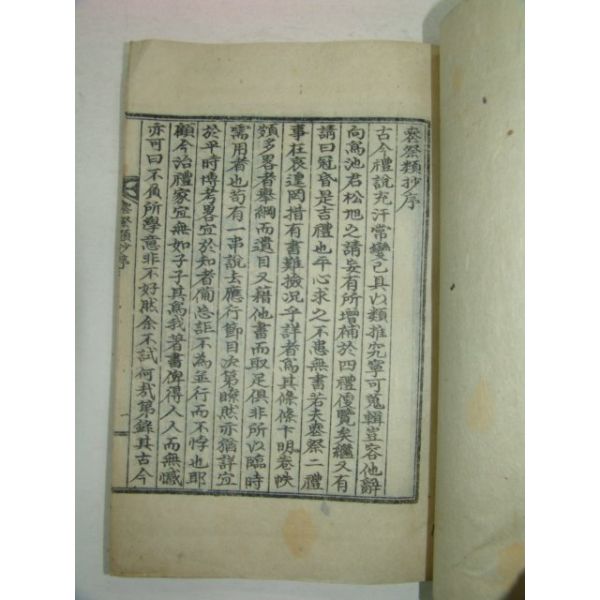 喪祭類抄序
古今禮說充汗常變已具以類推究寧可蒐輯豈容他辭
向寫池君松旭之請妄有所增補於四禮優覽矣繼又有
請曰冠昏是吉禮也平心求之不患無書若夫喪祭二禮
事在哀遑罔措有書難撿况乎詳者爲其條條卞明卷帙
頗多畧者擧綱而遺目又藉他書而取足俱非所以臨時
需用者也苟有一串說去應行節目次第瞭然亦猶詳宜
於平時博考畧宜於知者備忘詎不為並行而不悖也耶
顧今治禮家宜無如子子其爲我著書俾得人人而無憾
亦可曰不負所學意非不好然余不試何㢤第錄其古今
喪祭類抄序
一